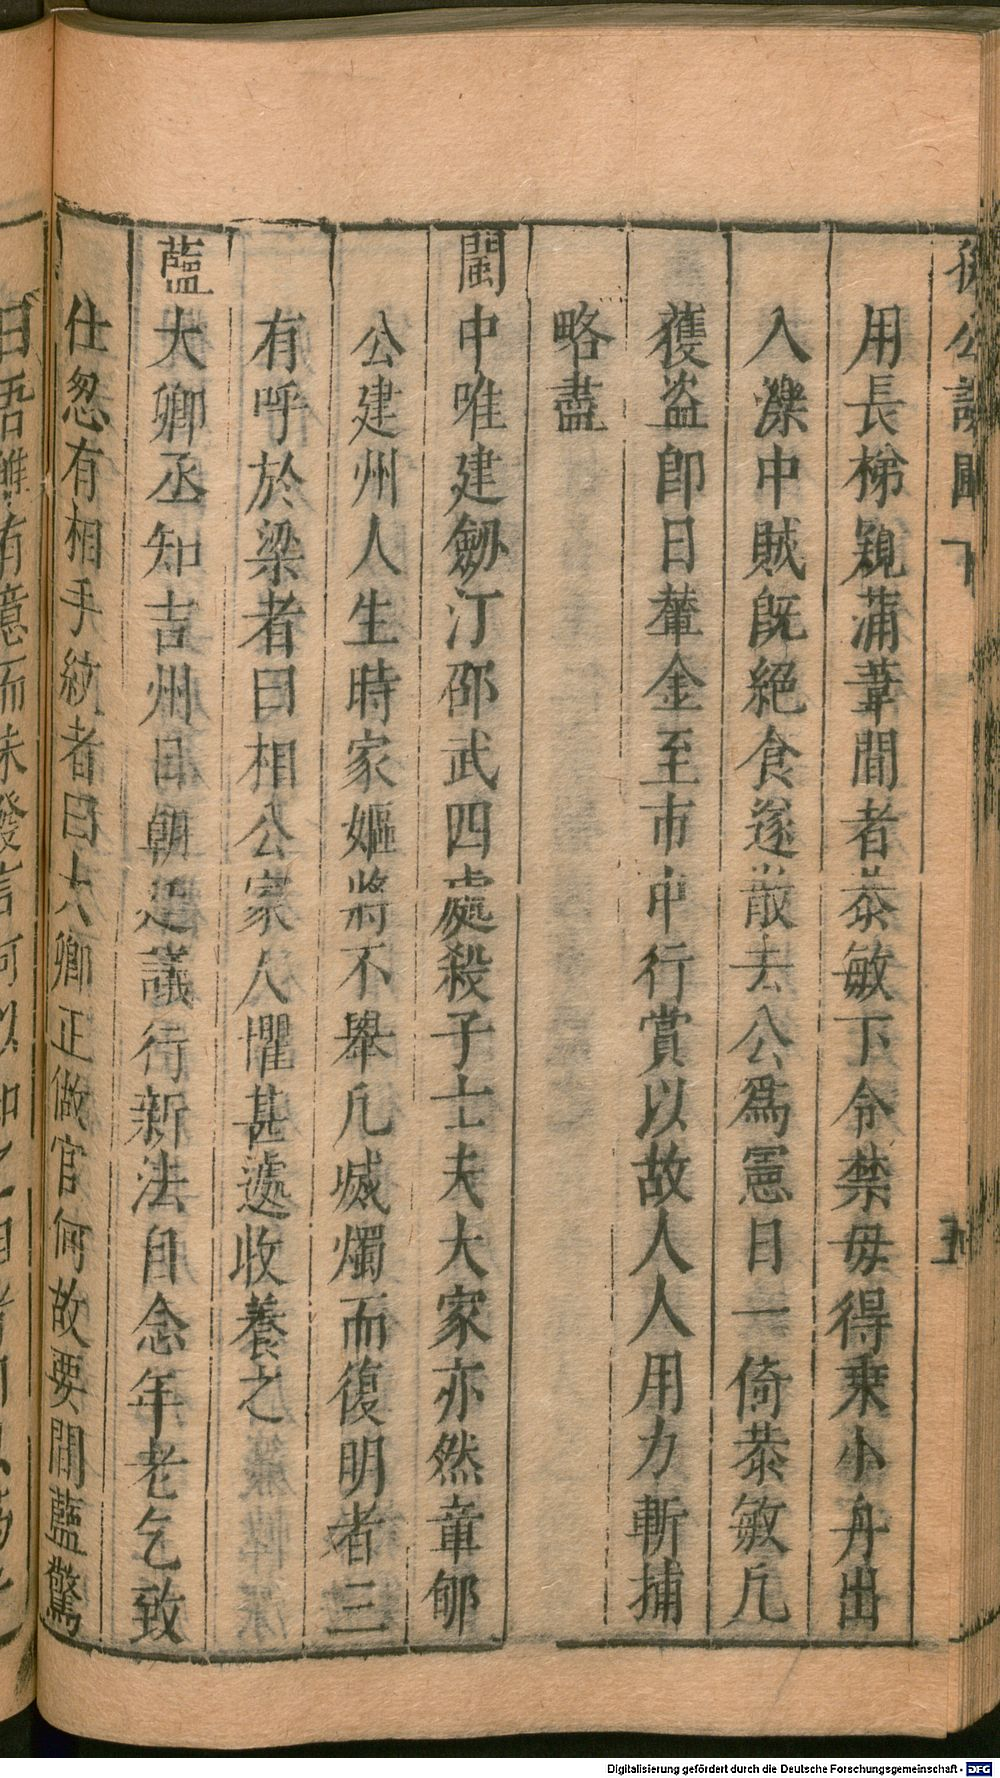 孫公談圃 下 五
用長梯窺蒲葦間者恭敏下令禁毋得乗小舟出
入濼中賊旣絕食遂散去公爲憲日一倚恭敏凡
獲盗即日輦金至市中行賞以故人人用力斬捕
略盡
閩中唯建劒汀邵武四處殺子士夫大家亦然章郇
公建州人生時家嫗將不舉凡滅燭而復明者三
有呼於梁者曰相公家人懼甚遽收養之
藍大卿丞知吉州日朝廷議行新法自念年老乞致
仕忽有相手紋者曰大卿正做官何故要閒藍驚
日吾雖有意而未發言何以知之
Digitalisierung gefördert durch die Deutsche Forschungsgemeinschaft - DFG